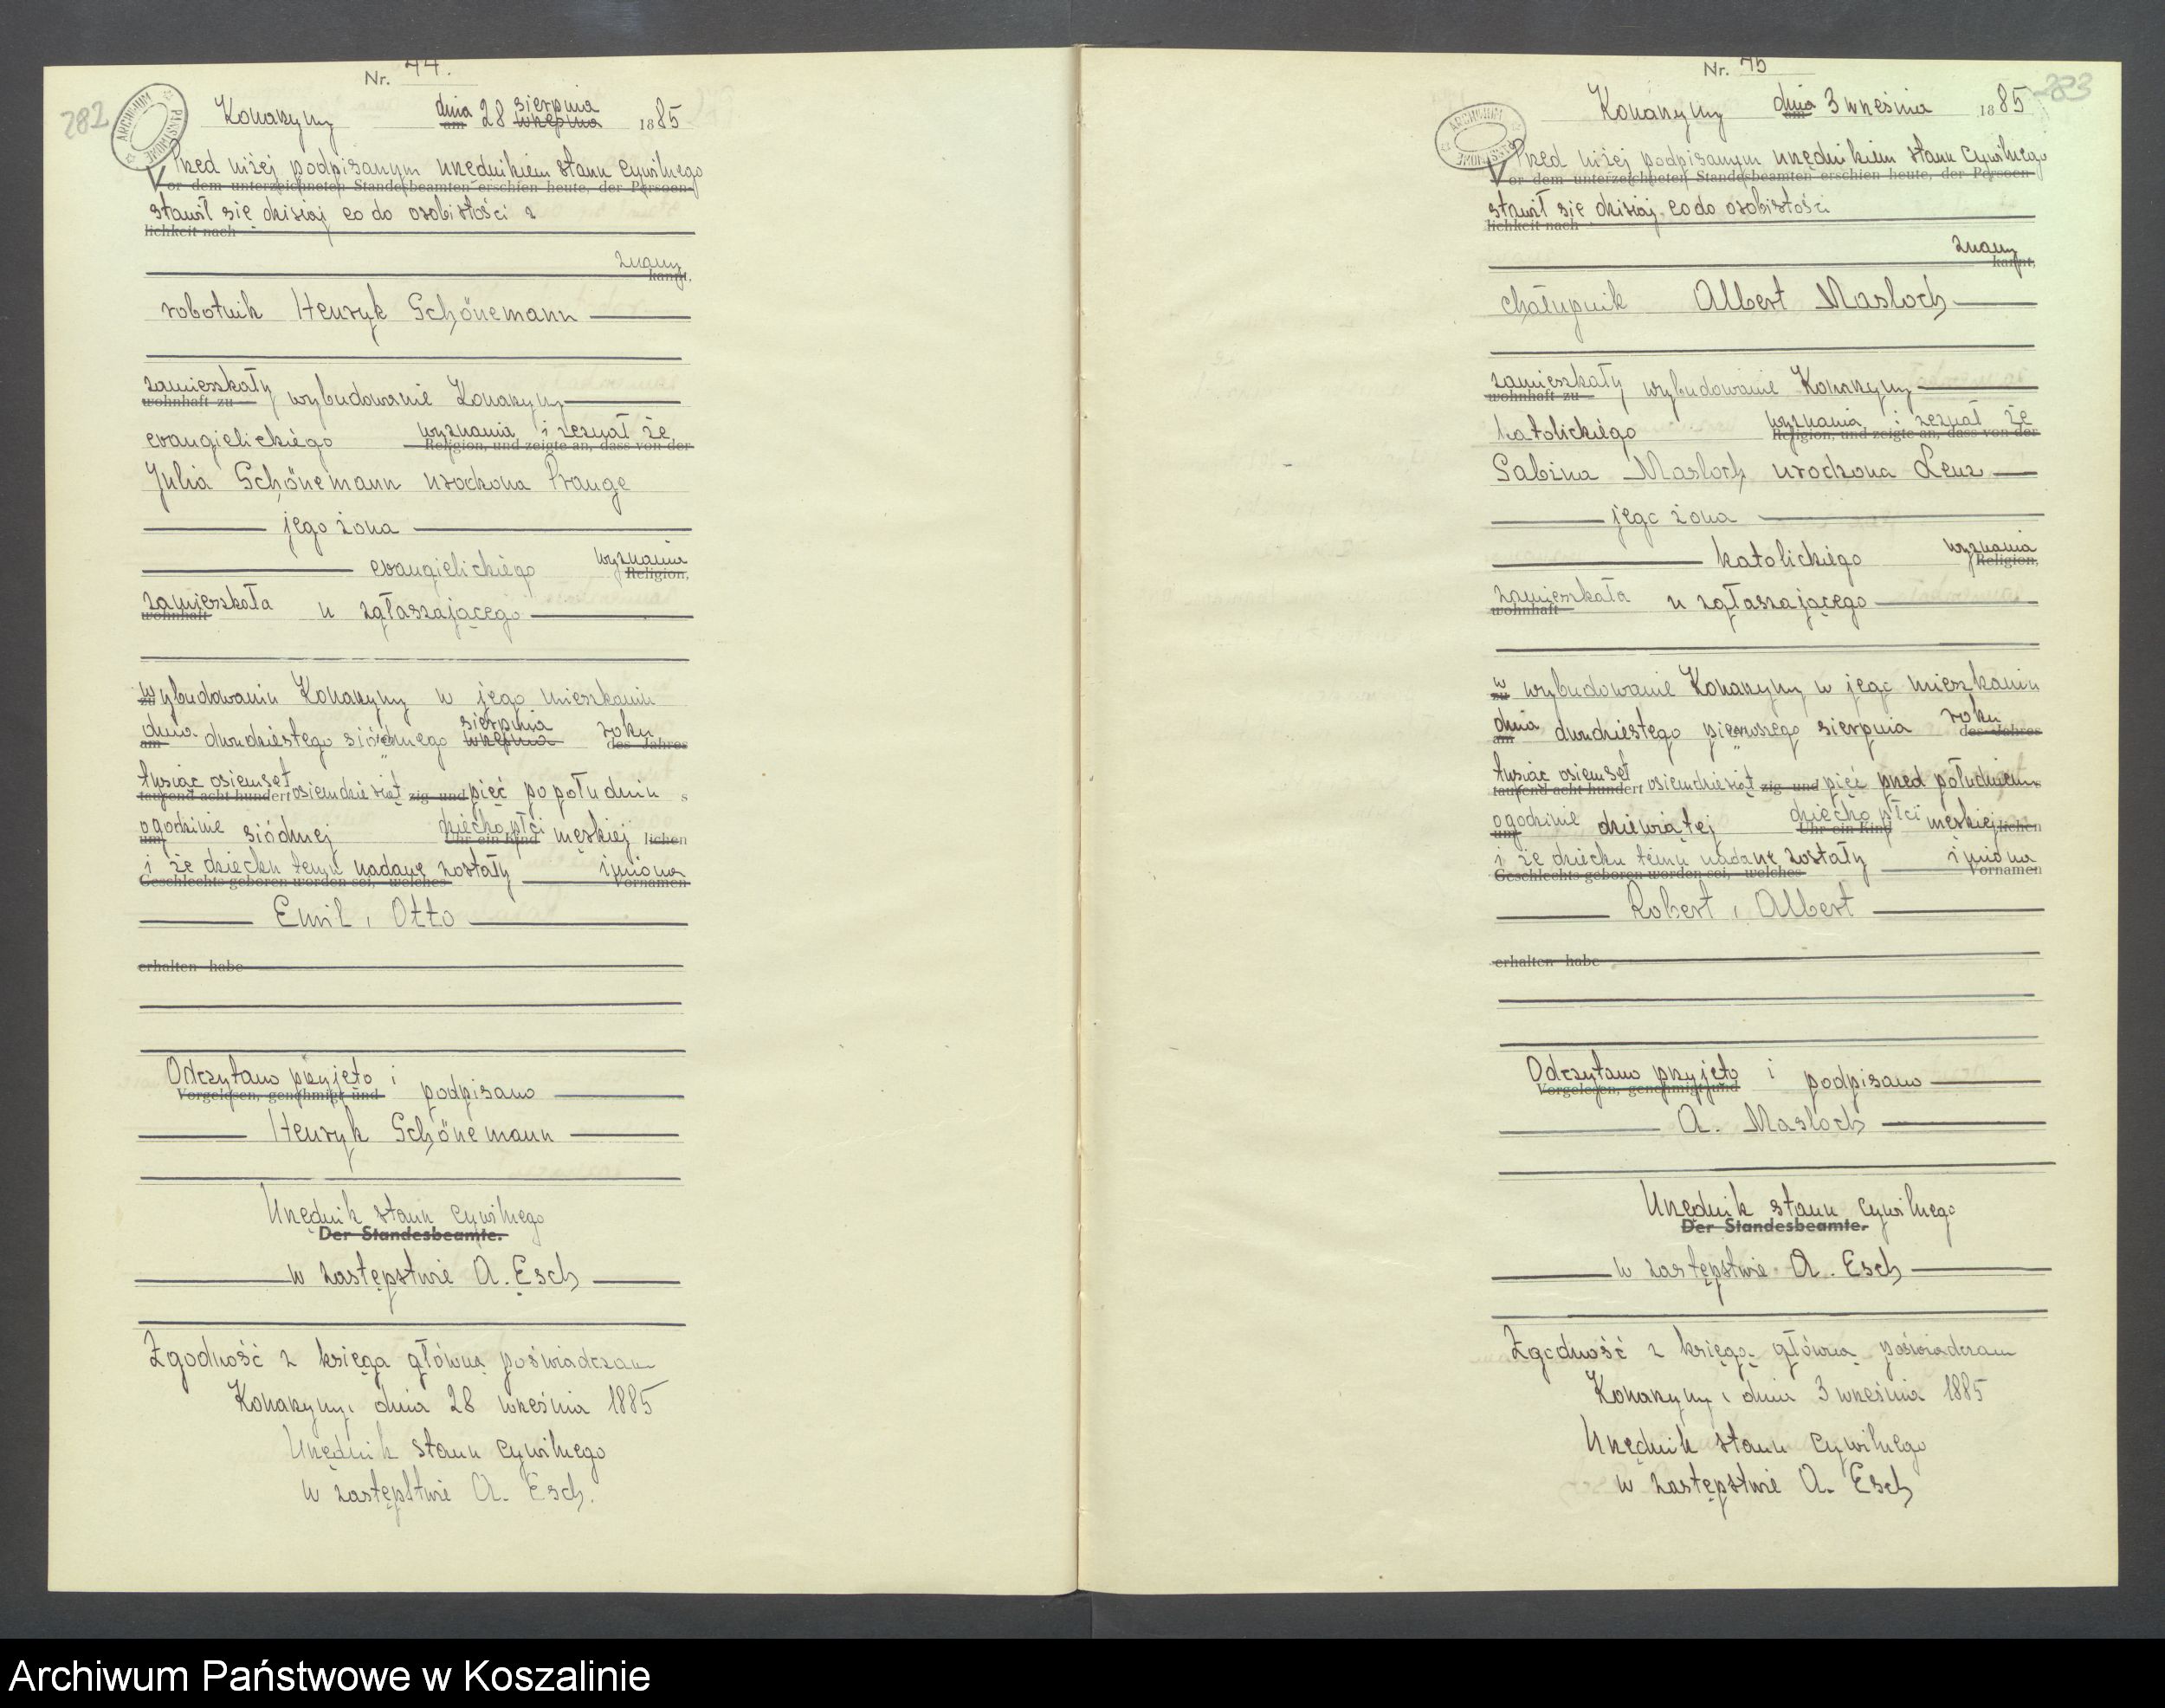 282
ARCHIWUM PAŃSTWOWE
Nr. 44.
Konarzyny dnia am 28 sierpnia września 1885
Przed niżej podpisanym urzędnikiem stanu cywilnego
Vor dem unterzeichneten Standesbeamten erschien heute, der Persoen-
stawił się dzisiaj co do osobistości z
lichkeit nach
znany
kannt,
robotnik Henryk Schönemann
zamieszkały wybudowanie Konarzyny
wohnhaft zu
evangielickiégo wyznania i zeznał że
Religion, und zeigte an, dass von der
Julia Schönemann urodzona Prange
jego żona
evangielickiégo wyznania
Religion,
zamieszkała u zgłaszającego
wohnhaft
wybudowaniu Konarzyny w jego mieszkaniu
zu
sierpnia
dnia dwudziestego siódmego września roku
am des Jahres
tysiąc osiemset osiemdziesiąt pięć popołudniu s
tausend acht hundert zig und
ogodzinie siódmej dziecko płci męskiej lichen
um Uhr ein Kind
i że dziecku temu nadane zostały imiona
Geschlechts geboren worden sei, welches Vornamen
Emil, Otto
erhalten habe
Odczytano przyjęto i podpisano
Vorgelesen, genehmigt und
Henryk Schönemann
Urzędnik stanu cywilnego
Der Standesbeamte.
w zastępstwie A. Esch
Zgodność z księgą główną poświadczam
Konarzyny, dnia 28 września 1885
Urzędnik stanu cywilnego
w zastępstwie A. Esch.
283
ARCHIWUM PAŃSTWOWE
Nr. 45
Konarzyny dnia am 3 września 1885
Przed niżej podpisanym urzędnikiem stanu cywilnego
Vor dem unterzeichneten Standesbeamten erschien heute, der Persoen-
stawił się dzisiaj co do osobistości
lichkeit nach
znany
kannt,
chałupnik Albert Masloch
zamieszkały wybudowanie Konarzyny
wohnhaft zu
katolickiégo wyznania i zeznał że
Religion, und zeigte an, dass von der
Sabina Masloch urodzona Lenz
jego żona
katolickiégo wyznania
Religion,
zamieszkała u zgłaszającego
wohnhaft
w wybudowanie Konarzyny w jego mieszkaniu
zu
dnia dwudziestego pierwszego sierpnia roku
am des Jahres
tysiąc osiemset osiemdziesiąt pięć przed południem
tausend acht hundert zig und
ogodzinie dziewiątej dziecko płci męskiej lichen
um Uhr ein Kind
i że dziecku temu nadane zostały imiona
Geschlechts geboren worden sei, welches Vornamen
Robert, Albert
erhalten habe
Odczytano przyjęto i podpisano
Vorgelesen, genehmigt und
A. Masloch
Urzędnik stanu cywilnego
Der Standesbeamte.
w zastępstwie A. Esch
Zgodność z księgą główną poświadczam
Konarzyny, dnia 3 września 1885
Urzędnik stanu cywilnego
w zastępstwie A. Esch
Archiwum Państwowe w Koszalinie